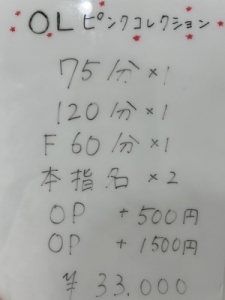 OL ピンクコレクション
75分×1
120分×1
F 60分×1
本指名 ×2
OP +500円
OP +1500円
¥33.000